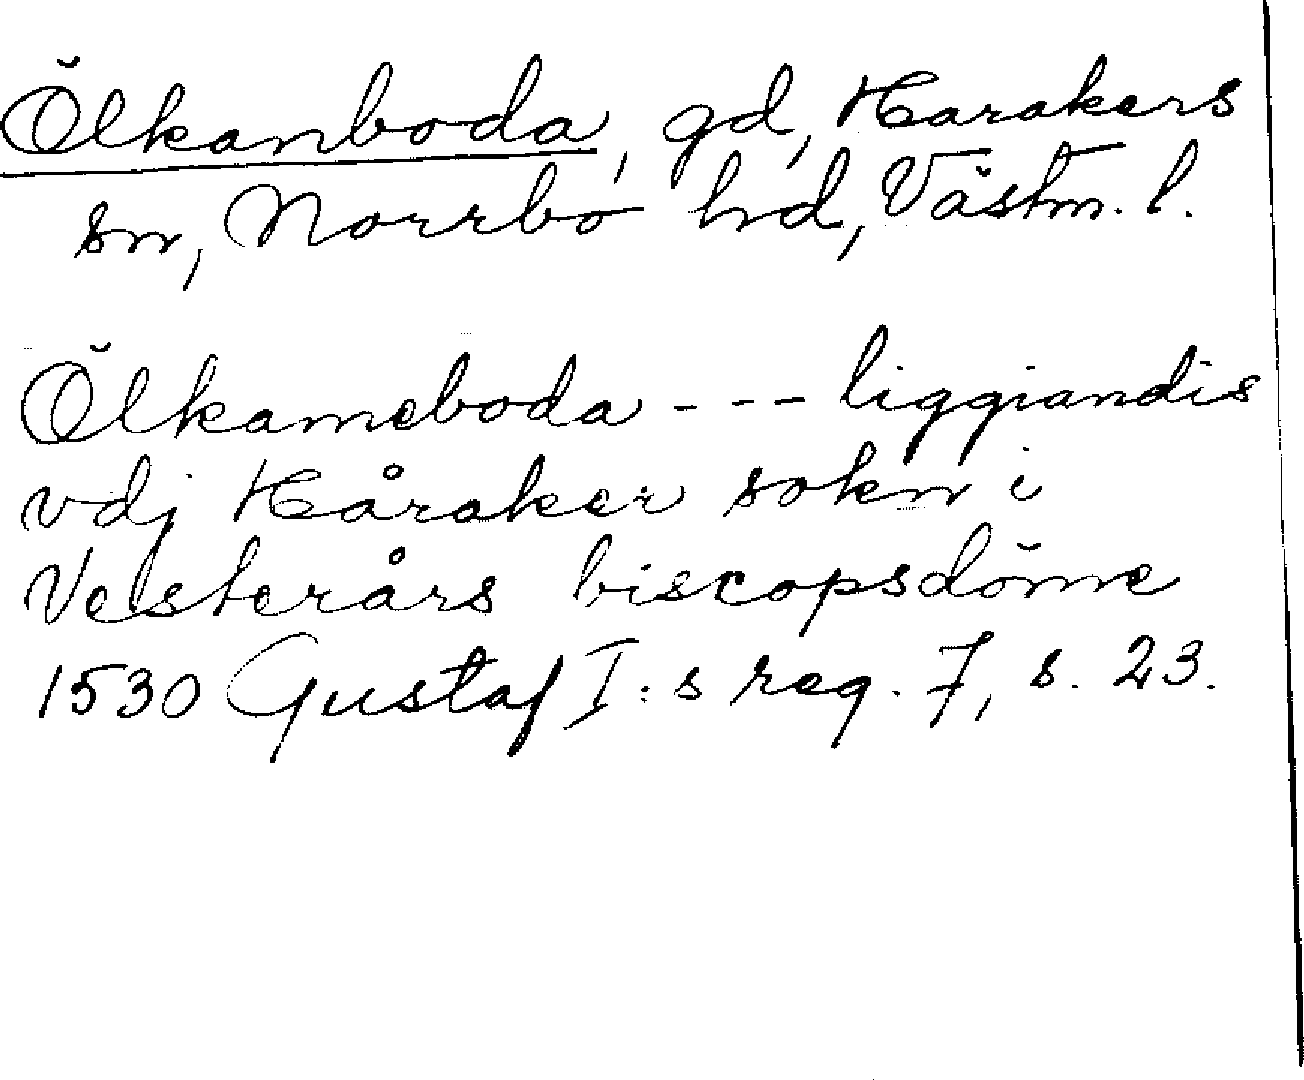 Ölkanboda, gd, Harakers
sn, Norrbo hd, Västm. l.
Ölkameboda --- liggiandis
vdj Håraker sokn i
Vesterårs biscopsdöme
1530 Gustaf I:s reg. 7, s. 23.